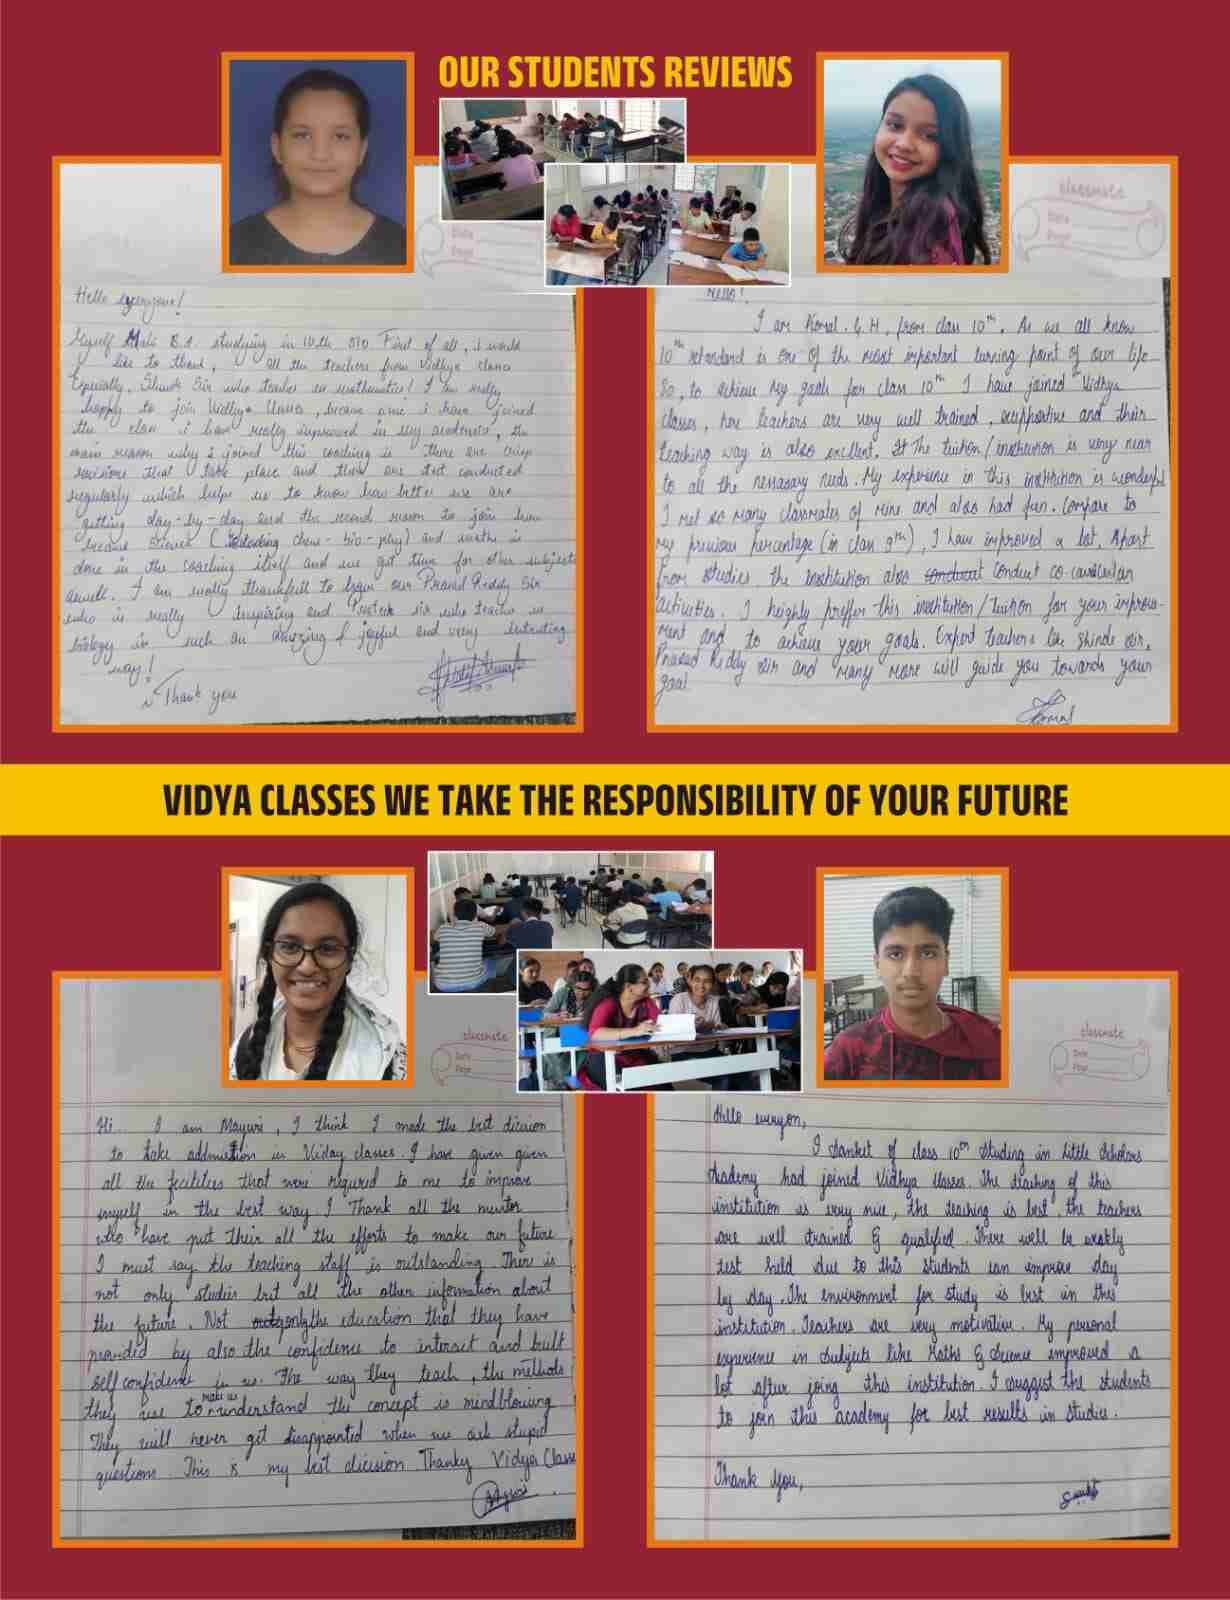 OUR STUDENTS REVIEWS
classmate
Date
Page
Hello everyone!
Myself B.A. studying in 10th First of all, i would
like to thank, all the teachers from Vidhya classes
Especially, Sir who teaches us mathematics! I am really
happy to join Vidhya Classes, i have joined
the class i have really improved in my academics, the
main reason why i joined this coaching is there are
revisions that take place and there are test conducted
regularly which helps us to know how better we are
getting day-by-day and the second reason to join
because science (chem-bio-phy) and maths is
done in the coaching itself and we get time for other subjects
aswell. I am really thankfull to our Reddy Sir
who is really inspiring and sir who teaches us
biology in such an amazing & joyful and very
way!
Thank you
Hello!
I am Komal. G. H, from class 10th. As we all know
10th standard is one of the most important turning point of our life
So, to achieve my goals for class 10th I have joined Vidhya
classes, here teachers are very well trained, supportive and their
teaching way is also excellent. The tuition/institution is very near
to all the needs. My experience in this institution is wonderful
I met so many classmates of mine and also had fun. Compare to
my previous percentage (in class 9th), I have improved a lot. Apart
from studies the institution also conduct conduct co-
activities. I heighly preffer this institution/Tuition for your improve-
ment and to achieve your goals. Expert teachers like Shinde sir,
Prasad Reddy sir and many more will guide you towards your
goal
Komal
VIDYA CLASSES WE TAKE THE RESPONSIBILITY OF YOUR FUTURE
classmate
Date
Page
classmate
Date
Page
Hi.. I am Mayuri, I think I made the best dicision
to take in Viday classes. I have given given
all the that were required to me to improve
myself in the best way. I Thank all the mentor
who have put their all the efforts to make our future
I must say the teaching staff is outstanding. There is
not only studies but all the other information about
the future. Not only the education that they have
provided by also the confidence to interact and built
self confidence in us. The way they teach, the methods
they use to make us understand the concept is mindblowing
They will never get disappointed when we ask stupid
questions. This is my best dicision Thanky Vidya Classe
Hello everyon,
I Sanket of class 10th Studing in Little Scholars
Academy had joined Vidhya classes. The teaching of this
institution is very nice, the teaching is best, the teachers
are well trained & qualified. There will be weekly
test held due to this students can improve day
by day. The environment for study is best in this
institution. Teachers are very motivative. My personal
experience in subjects like Maths & Science improved a
lot after joing this institution. I suggest the students
to join this academy for best results in studies.
Thank You,